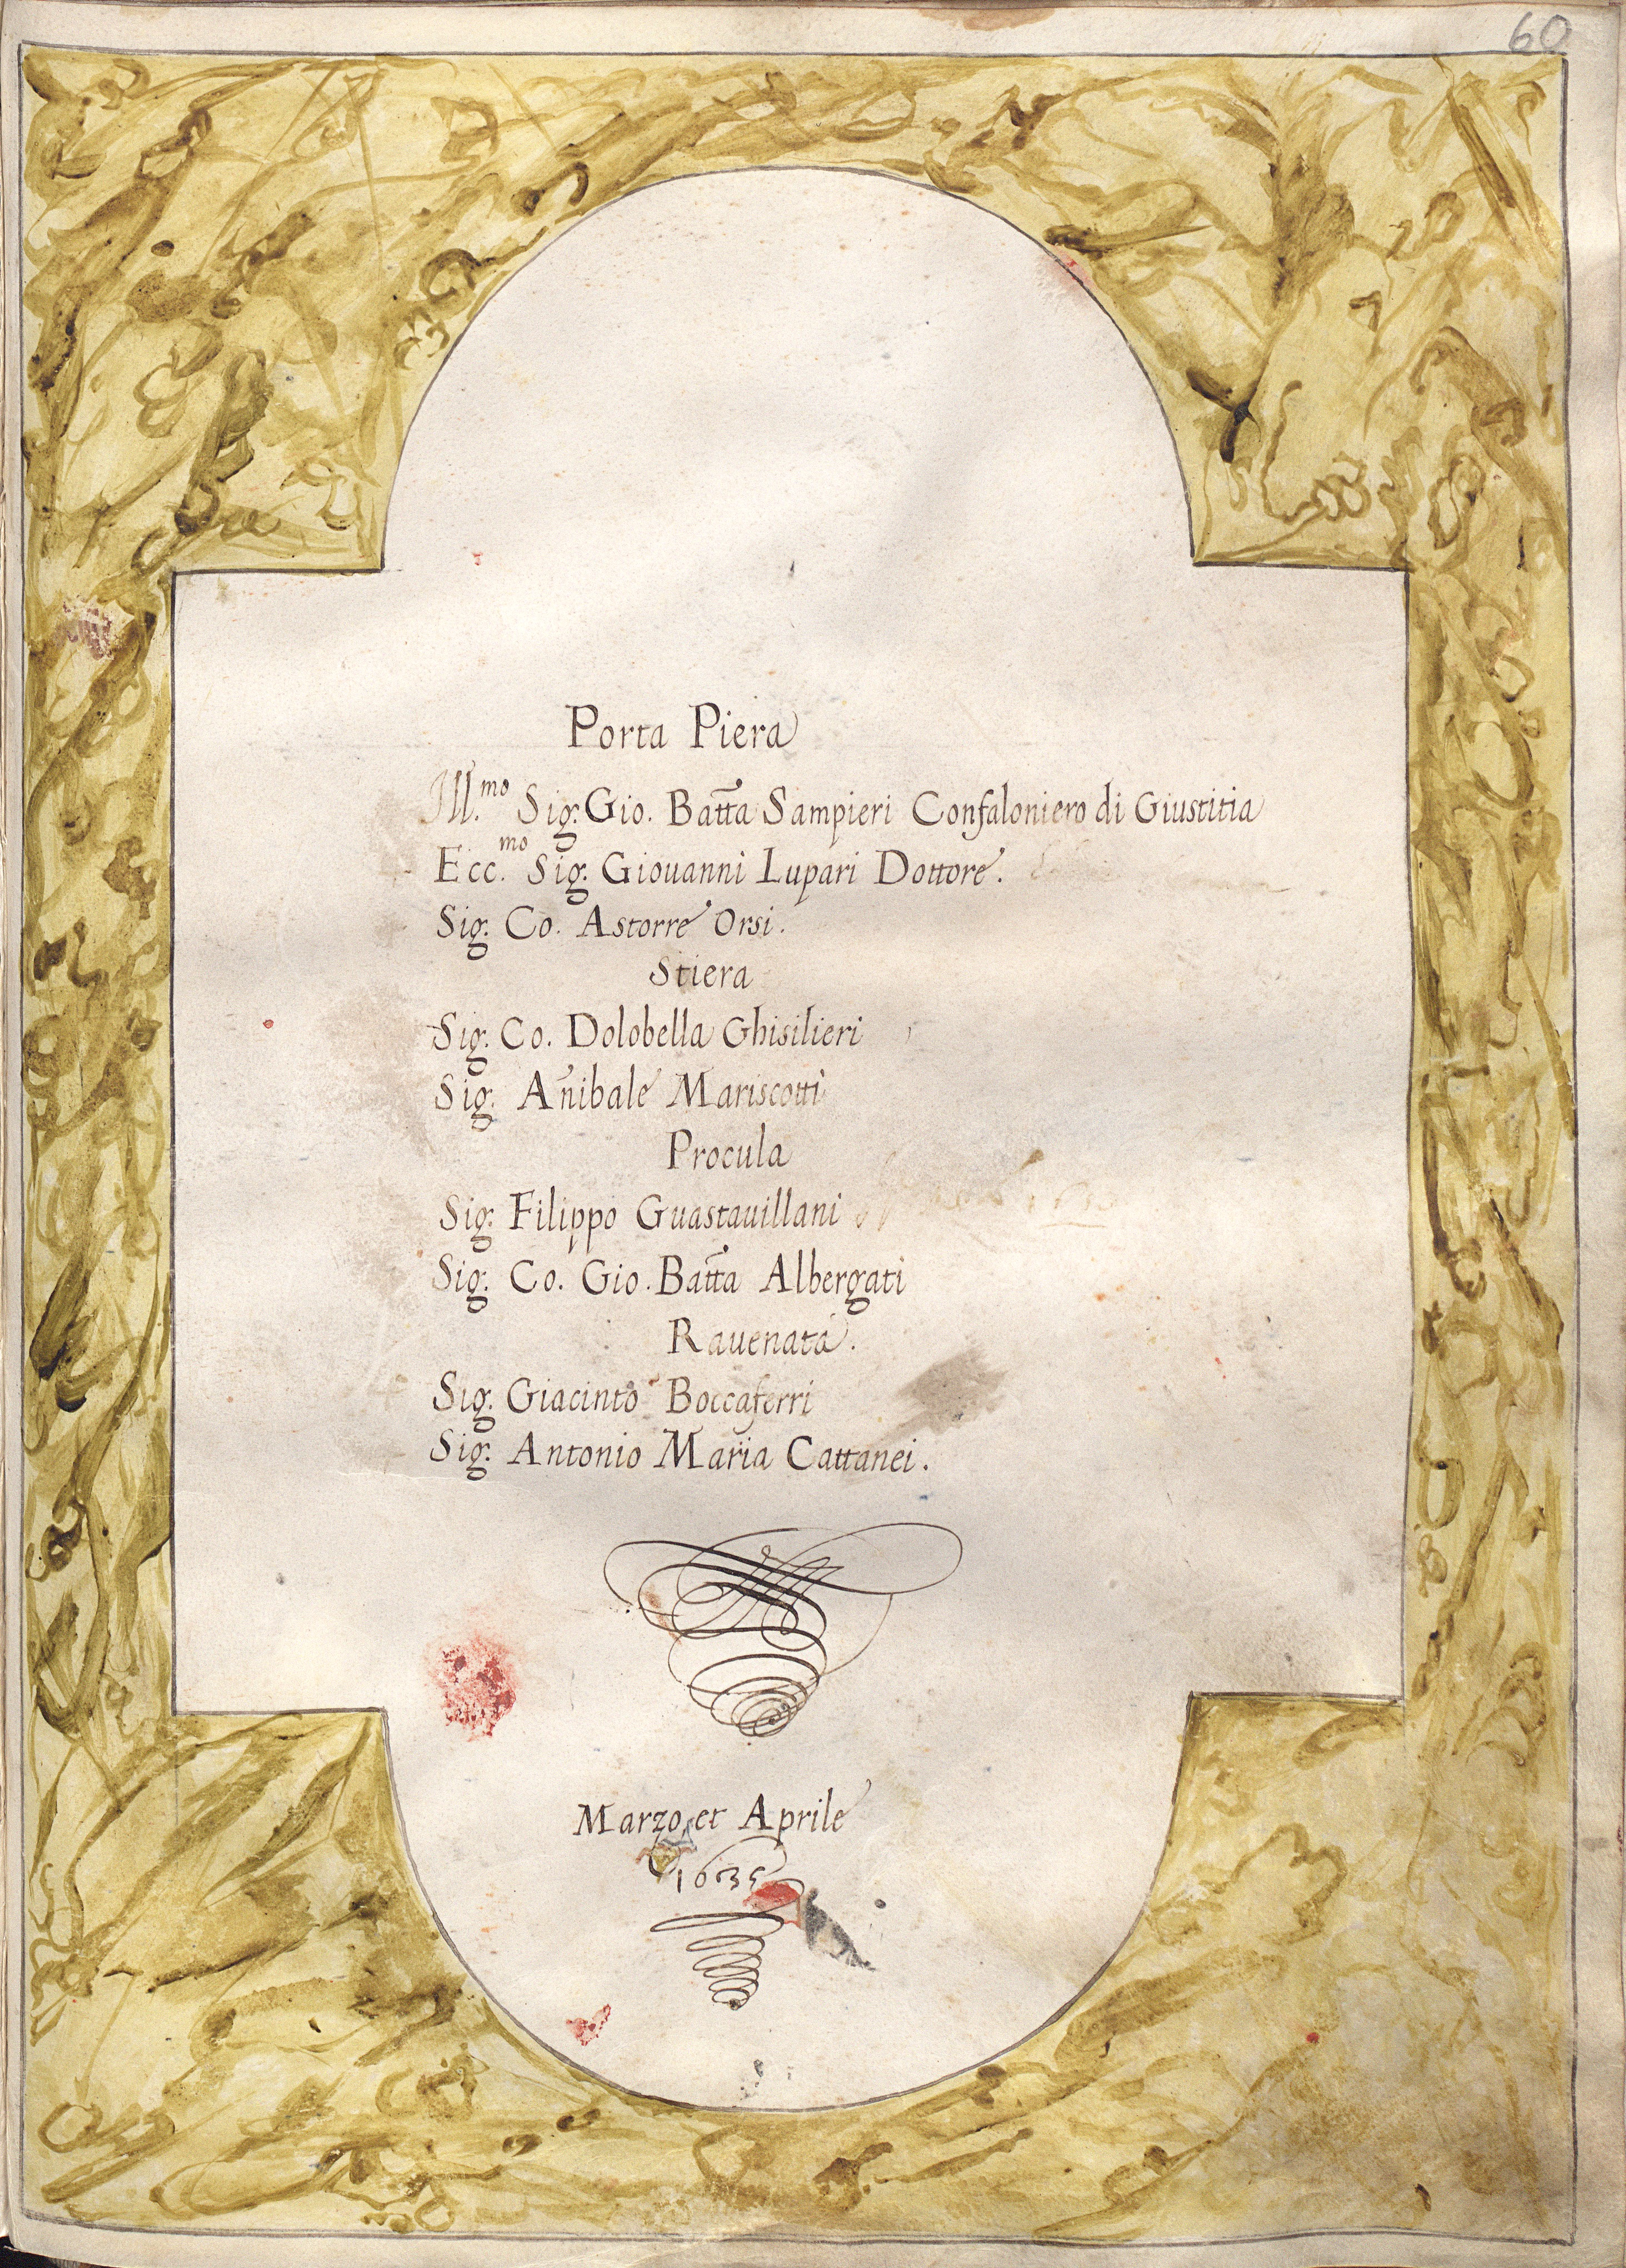 60
Porta Piera
Ill.mo Sig: Gio. Batta Sampieri Confaloniero di Giustitia
Ecc.mo Sig: Giouanni Lupari Dottore.
Sig: Co. Astorre Orsi.
Stiera
Sig: Co. Dolobella Ghisilieri
Sig: Añibale Mariscotti
Procula
Sig: Filippo Guastauillani
Sig: Co. Gio. Batta Albergati
Rauenata.
Sig: Giacinto Boccaferri
Sig: Antonio Maria Cattanei.
Marzo, et Aprile
1635